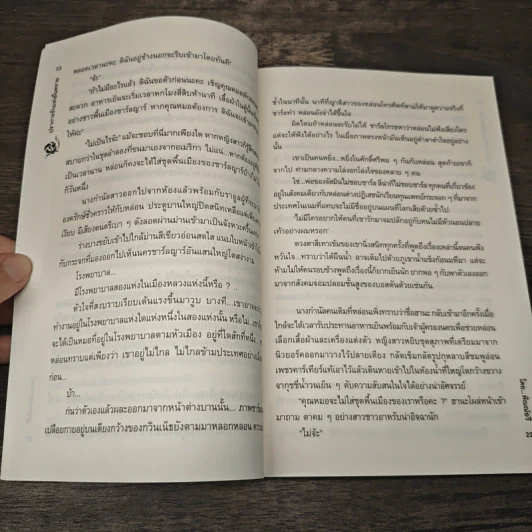 22
ปราการรักแห่งผืนทราย
ตลอดเวลานะคะ ดิฉันอยู่ข้างนอกจะรีบเข้ามาโดยทันที"
"จ้ะ"
"ถ้าไม่มีอะไรแล้ว ดิฉันขอตัวก่อนนะคะ เชิญคุณหมอ
สะดวก อาหารเย็นจะเริ่มเวลาหกโมงสี่สิบห้านาที
อย่างชาวพื้นเมืองชาร์ญาร์ หากคุณหมอต้องการ ดิฉันจะ
ให้ค่ะ"
"ไม่เป็นไรจ้ะ" แม้จะชอบที่นี่มากเพียงใด หากหญิงสาวก็รู้สึก
สบายกว่าในชุดลำลองที่ขนมาเองจากอเมริกา ไม่แน่...หาก
เป็นเวลานาน หล่อนก็คงจะได้ใส่ชุดพื้นเมืองของชาร์ญาร์
ก็วันหนึ่ง
นางกำนัลสาวออกไปจากห้องแล้วพร้อมกับราอูลผู้ที่
องครักษ์ชั่วคราวให้กับหล่อน ประตูบานใหญ่ปิดสนิทเหลือแต่
เรียบ มีเสียงดนตรีเบา ๆ ดังลอดผ่านม่านเข้ามาเป็นจังหวะ
ร่างบางขยับเข้าไปใกล้ม่านสีเขียวอ่อนสดใส แนบใบหน้า
กับกระจกที่มองออกไปเห็นนครชาร์ลญาร์อันแสนใหญ่โตสง่างาม
โรงพยาบาล...
มีโรงพยาบาลสองแห่งในเมืองหลวงแห่งนี้หรือ ? ...
หัวใจที่สงบราบเรียบเต้นแรงขึ้นมาวูบ บางที...เขาอาจจะ
ทำงานอยู่ในโรงพยาบาลแห่งใดแห่งหนึ่งในสองแห่งนั้น หรือไม่...
จะได้เป็นหมออยู่ในโรงพยาบาลตามหัวเมือง อยู่ที่ใดสักที่หนึ่ง...
หล่อนทราบแต่เพียงว่า เขาอยู่ไม่ไกล ไม่ไกลข้ามประเทศอย่าง
ก่อน...
บ้า...
กว่าตัวเองแล้วผละออกมาจากหน้าต่างบานนั้น... ภาพชาร์
เปลือยกายอยู่บนเตียงกว้างของกวินเน็ธยังตามมาหลอกหลอน
ซ้ำในนาทีนั้น นาทีที่ญาติสาวของหล่อนโทรศัพท์ตามให้มาดูความจริงที่
ชาร์ลทำ หล่อนยังจำได้ขึ้นใจ
ผิดไหมถ้าหล่อนจะรับไม่ได้ ชาร์ลโกรธหาว่าหล่อนไม่ฟังเสียงใคร
แต่จะให้ฟังได้อย่างไร ในเมื่อภาพตรงหน้ามันเห็นอยู่ตำตาตำใจอยู่อย่าง
นั้น
เขาเป็นคนหยิ่ง...หยิ่งในศักดิ์ศรีพอ ๆ กันกับหล่อน สุดท้ายเขาก็
จากไป ท่ามกลางความโล่งอกโล่งใจของหลาย ๆ คน
ใช่...พ่อของจัสมินไม่ชอบชาร์ล
อยู่ในสังคมเดียวกับหล่อนต่างปฏิเสธนักเรียนทุนแพทย์กระจอก ๆ ที่มาจาก
ประเทศในแถบที่แทบจะไม่มีชื่ออยู่บนแผนที่โลกเสียด้วยซ้ำไป
'ไม่มีใครอยากให้คนที่เขารักมาจมปลักอยู่กับคนไม่มีหัวนอนปลาย
เท้าอย่างผมหรอก'
ดวงตาสีเทาเข้มของเขานิ่งสนิททุกครั้งที่พูดถึงเรื่องเหล่านี้
หวั่นใจ...ทราบว่าได้ฝืนน้ำ อาจเต็มไปด้วยภูเขาน้ำแข็งก้อนมหึมา แต่จะ
ห้ามไม่ให้คนรอบข้างพูดถึงเรื่องนี้ก็ยากเย็นนัก ยากพอ ๆ กับพาตัวเองออก
มาจากสังคมจอมปลอมชั้นสูงของบอสตันด้วยเช่นกัน
นางกำนัลคนเดิมที่หล่อนเพิ่งทราบว่าชื่อฮานะ กลับเข้ามาอีกครั้งเมื่อ
ใกล้จะได้เวลารับประทานอาหารเย็นพร้อมกับเจ้าผู้ครองนครเพื่อช่วยหล่อน
เลือกเสื้อผ้าและเครื่องแต่งตัว หญิงสาวหยิบชุดสุภาพที่เตรียมมาจาก
นิวยอร์คออกมาวางไว้ปลายเตียง กลัดเข็มกลัดรูปกุหลาบสีชมพูอ่อน
เพชรคาร์เทียร์แท้เอาไว้แล้วเดินหายเข้าไปในห้องน้ำที่ใหญ่โตกว้างขวาง
จากุซซี่น้ำวนเย็น ๆ ดับความสับสนในใจได้อย่างน่าอัศจรรย์
"คุณหมอจะไม่ใส่ชุดพื้นเมืองของเราหรือคะ ?" ฮานะโผล่หน้าเข้า
มาถาม ตาคม ๆ อย่างสาวชาวอาหรับน่าอิจฉานัก
"ไม่จ้ะ"
23